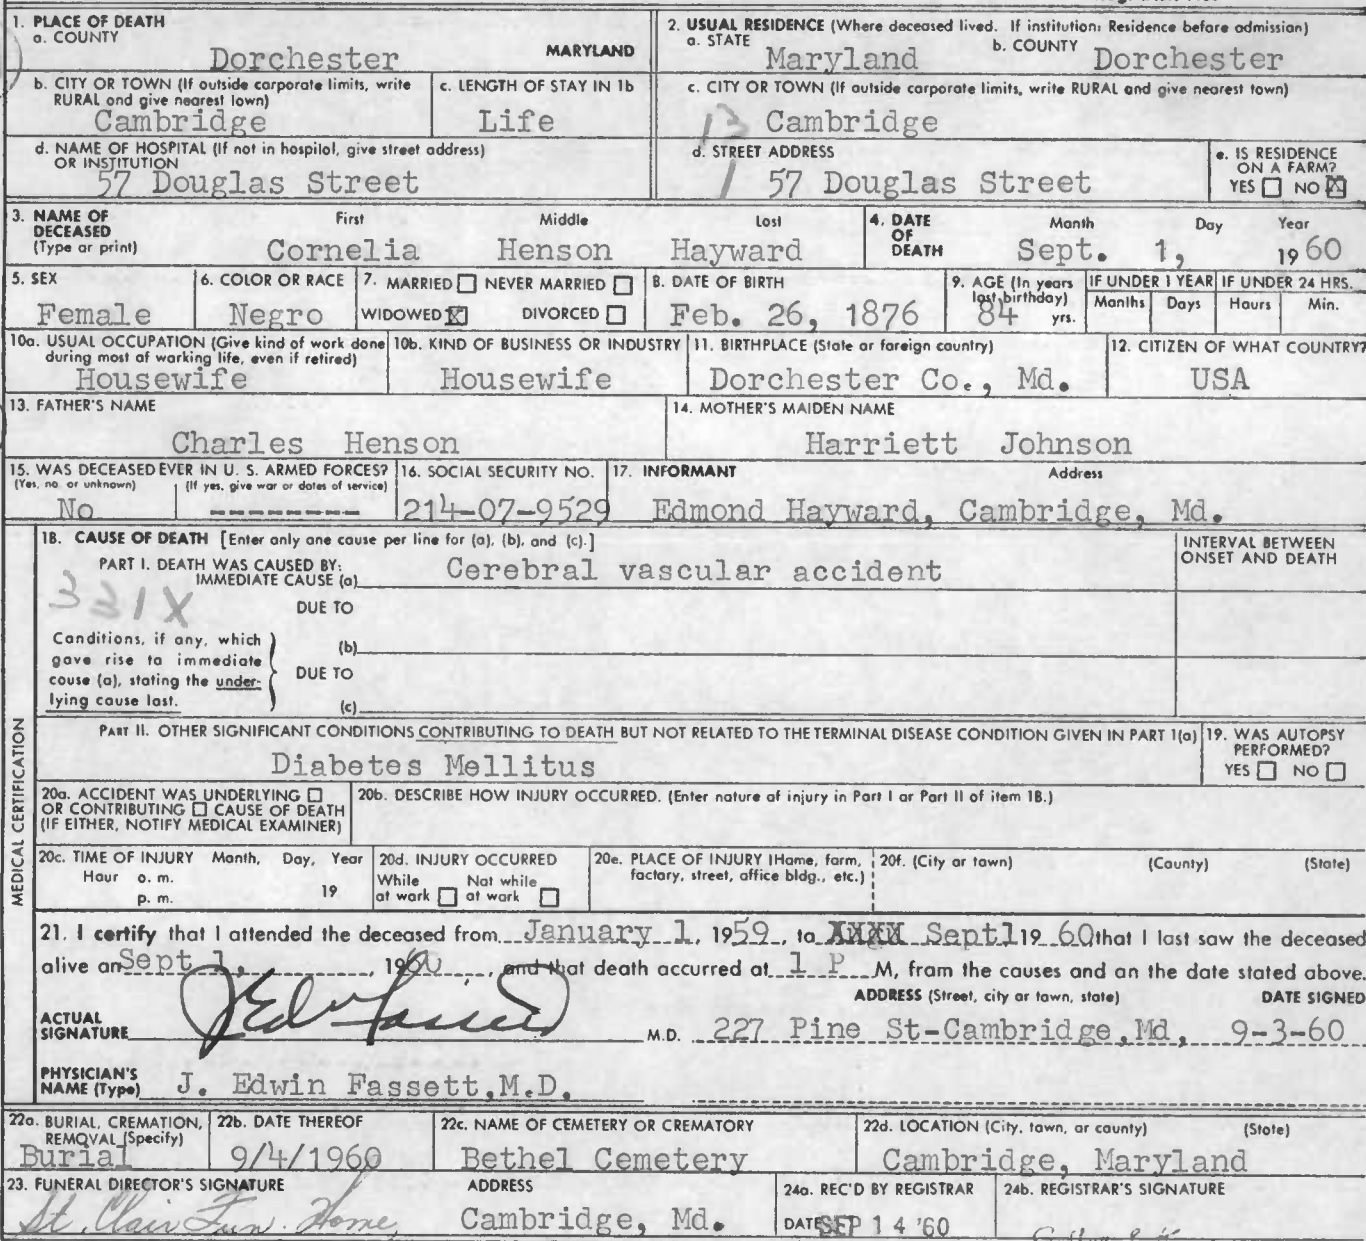 1. PLACE OF DEATH
a. COUNTY
Dorchester MARYLAND
2. USUAL RESIDENCE (Where deceased lived. If institution: Residence before admission)
a. STATE b. COUNTY
Maryland Dorchester
b. CITY OR TOWN (If outside corporate limits, write
RURAL and give nearest town)
Cambridge
c. LENGTH OF STAY IN 1b
Life
c. CITY OR TOWN (If outside corporate limits, write RURAL and give nearest town)
13 Cambridge
d. NAME OF HOSPITAL (If not in hospital, give street address)
OR INSTITUTION
57 Douglas Street
d. STREET ADDRESS
57 Douglas Street
e. IS RESIDENCE
ON A FARM?
YES ☐ NO ☒
3. NAME OF
DECEASED
(Type or print)
First Middle Last
Cornelia Henson Hayward
4. DATE
OF
DEATH
Month Day Year
Sept. 1, 1960
5. SEX
Female
6. COLOR OR RACE
Negro
7. MARRIED ☐ NEVER MARRIED ☐
WIDOWED ☒ DIVORCED ☐
8. DATE OF BIRTH
Feb. 26, 1876
9. AGE (In years
last birthday)
84 yrs.
IF UNDER 1 YEAR
Months Days
IF UNDER 24 HRS.
Hours Min.
10a. USUAL OCCUPATION (Give kind of work done
during most of working life, even if retired)
Housewife
10b. KIND OF BUSINESS OR INDUSTRY
Housewife
11. BIRTHPLACE (State or foreign country)
Dorchester Co., Md.
12. CITIZEN OF WHAT COUNTRY?
USA
13. FATHER'S NAME
Charles Henson
14. MOTHER'S MAIDEN NAME
Harriett Johnson
15. WAS DECEASED EVER IN U. S. ARMED FORCES?
(Yes, no. or unknown) (If yes, give war or dates of service)
No --------
16. SOCIAL SECURITY NO.
214-07-9529
17. INFORMANT Address
Edmond Hayward, Cambridge, Md.
18. CAUSE OF DEATH [Enter only one cause per line for (a), (b), and (c).]
PART I. DEATH WAS CAUSED BY:
IMMEDIATE CAUSE (a) Cerebral vascular accident
INTERVAL BETWEEN
ONSET AND DEATH
331X
DUE TO
Conditions, if any, which
gave rise to immediate
cause (a), stating the under-
lying cause last.
(b)
DUE TO
(c)
MEDICAL CERTIFICATION
PART II. OTHER SIGNIFICANT CONDITIONS CONTRIBUTING TO DEATH BUT NOT RELATED TO THE TERMINAL DISEASE CONDITION GIVEN IN PART 1(a)
Diabetes Mellitus
19. WAS AUTOPSY
PERFORMED?
YES ☐ NO ☐
20a. ACCIDENT WAS UNDERLYING ☐
OR CONTRIBUTING ☐ CAUSE OF DEATH
(IF EITHER, NOTIFY MEDICAL EXAMINER)
20b. DESCRIBE HOW INJURY OCCURRED. (Enter nature of injury in Part I or Part II of item 18.)
20c. TIME OF INJURY Month, Day, Year
Hour a. m.
p. m. 19
20d. INJURY OCCURRED
While Not while
at work ☐ at work ☐
20e. PLACE OF INJURY (Home, farm,
factory, street, office bldg., etc.)
20f. (City or town) (County) (State)
21. I certify that I attended the deceased from January 1, 1959, to XXXX Sept1 19 60 that I last saw the deceased
alive on Sept 1, 1960, and that death occurred at 1 P M, from the causes and on the date stated above.
ADDRESS (Street, city or town, state) DATE SIGNED
ACTUAL
SIGNATURE J Edw Fassett M.D. 227 Pine St-Cambridge,Md, 9-3-60
PHYSICIAN'S
NAME (Type) J. Edwin Fassett,M.D.
22a. BURIAL, CREMATION,
REMOVAL (Specify)
Burial
22b. DATE THEREOF
9/4/1960
22c. NAME OF CEMETERY OR CREMATORY
Bethel Cemetery
22d. LOCATION (City, town, or county) (State)
Cambridge, Maryland
23. FUNERAL DIRECTOR'S SIGNATURE ADDRESS
St. Clair Fun. Home, Cambridge, Md.
24a. REC'D BY REGISTRAR
DATE SEP 14 '60
24b. REGISTRAR'S SIGNATURE